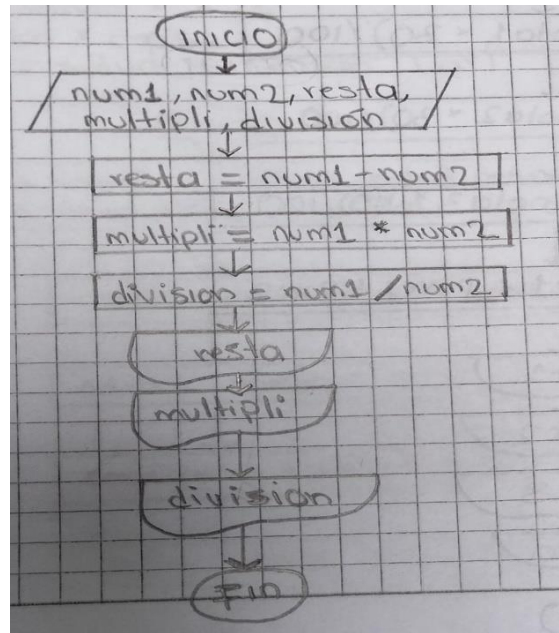 inicio
num1, num2, resta,
multipli, división
resta = num1 - num2
multipli = num1 * num2
division = num1 / num2
resta
multipli
division
Fin